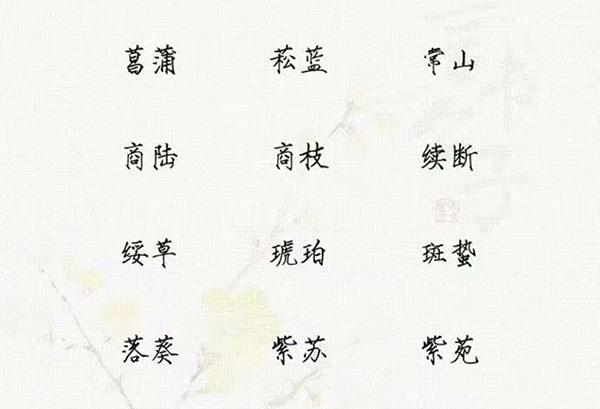 菖蒲 菘蓝 常山
商陆 商枝 续断
绥草 琥珀 斑蛰
落葵 紫苏 紫苑